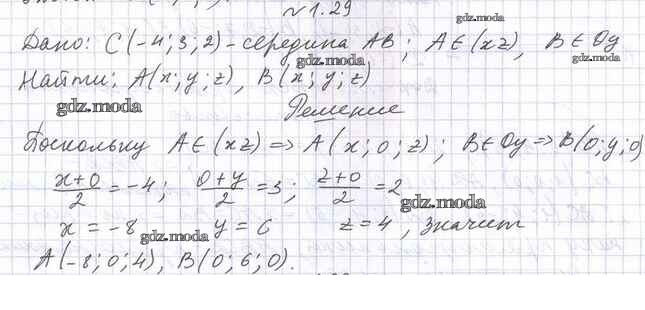 №1.29
gdz.moda
Дано: C(-4; 3; 2) - середина AB; A∈(xz), B∈Oy
gdz.moda
gdz.moda
Найти: A(x; y; z), B(x; y; z)
gdz.moda
Решение
Поскольку A∈(xz) => A(x; 0; z); B∈Oy => B(0; y; 0)
x+0/2 = -4; 0+y/2 = 3; z+0/2 = 2
gdz.moda
x = -8 y = 6 z = 4, значит
gdz.moda
A(-8; 0; 4), B(0; 6; 0).